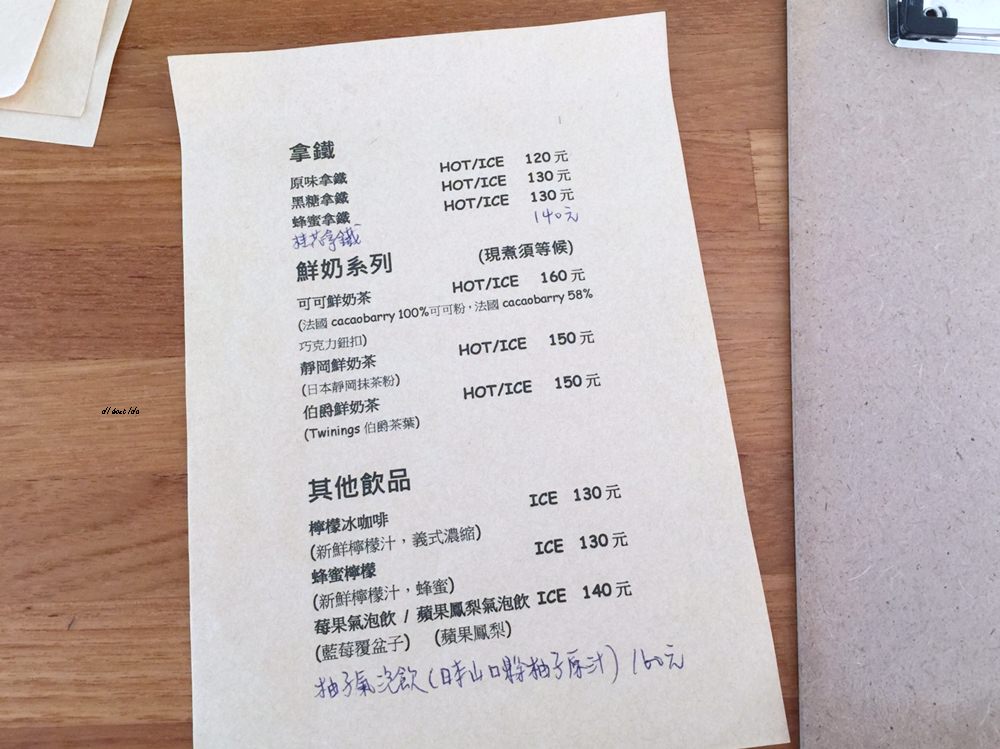 拿鐵
原味拿鐵 HOT/ICE 120元
黑糖拿鐵 HOT/ICE 130元
蜂蜜拿鐵 HOT/ICE 130元
桂花拿鐵 140元
鮮奶系列 (現煮須等候)
可可鮮奶茶 HOT/ICE 160元
(法國 cacaobarry 100%可可粉，法國 cacaobarry 58%
巧克力鈕扣)
靜岡鮮奶茶 HOT/ICE 150元
(日本靜岡抹茶粉)
伯爵鮮奶茶 HOT/ICE 150元
(Twinings 伯爵茶葉)
其他飲品
檸檬冰咖啡 ICE 130元
(新鮮檸檬汁，義式濃縮)
蜂蜜檸檬 ICE 130元
(新鮮檸檬汁，蜂蜜)
莓果氣泡飲 / 蘋果鳳梨氣泡飲 ICE 140元
(藍莓覆盆子) (蘋果鳳梨)
柚子氣泡飲(日本山口縣柚子原汁) 160元